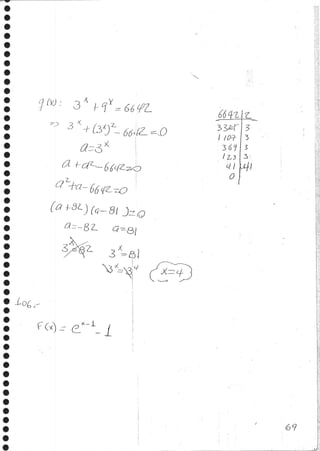 g(x): 3^x + 9^x = 6642
=> 3^x + (3^x)^2 - 6642 = 0
a = 3^x
a + a^2 - 6642 = 0
a^2 + a - 6642 = 0
(a + 82) (a - 81) = 0
a = -82 a = 81
3^x = -82 3^x = 81
3^x = 3^4 x = 4
6642 | 2
3321 | 3
1107 | 3
369 | 3
123 | 3
41 | 41
0
106.-
F(x) = e^{x-1} - 1
69